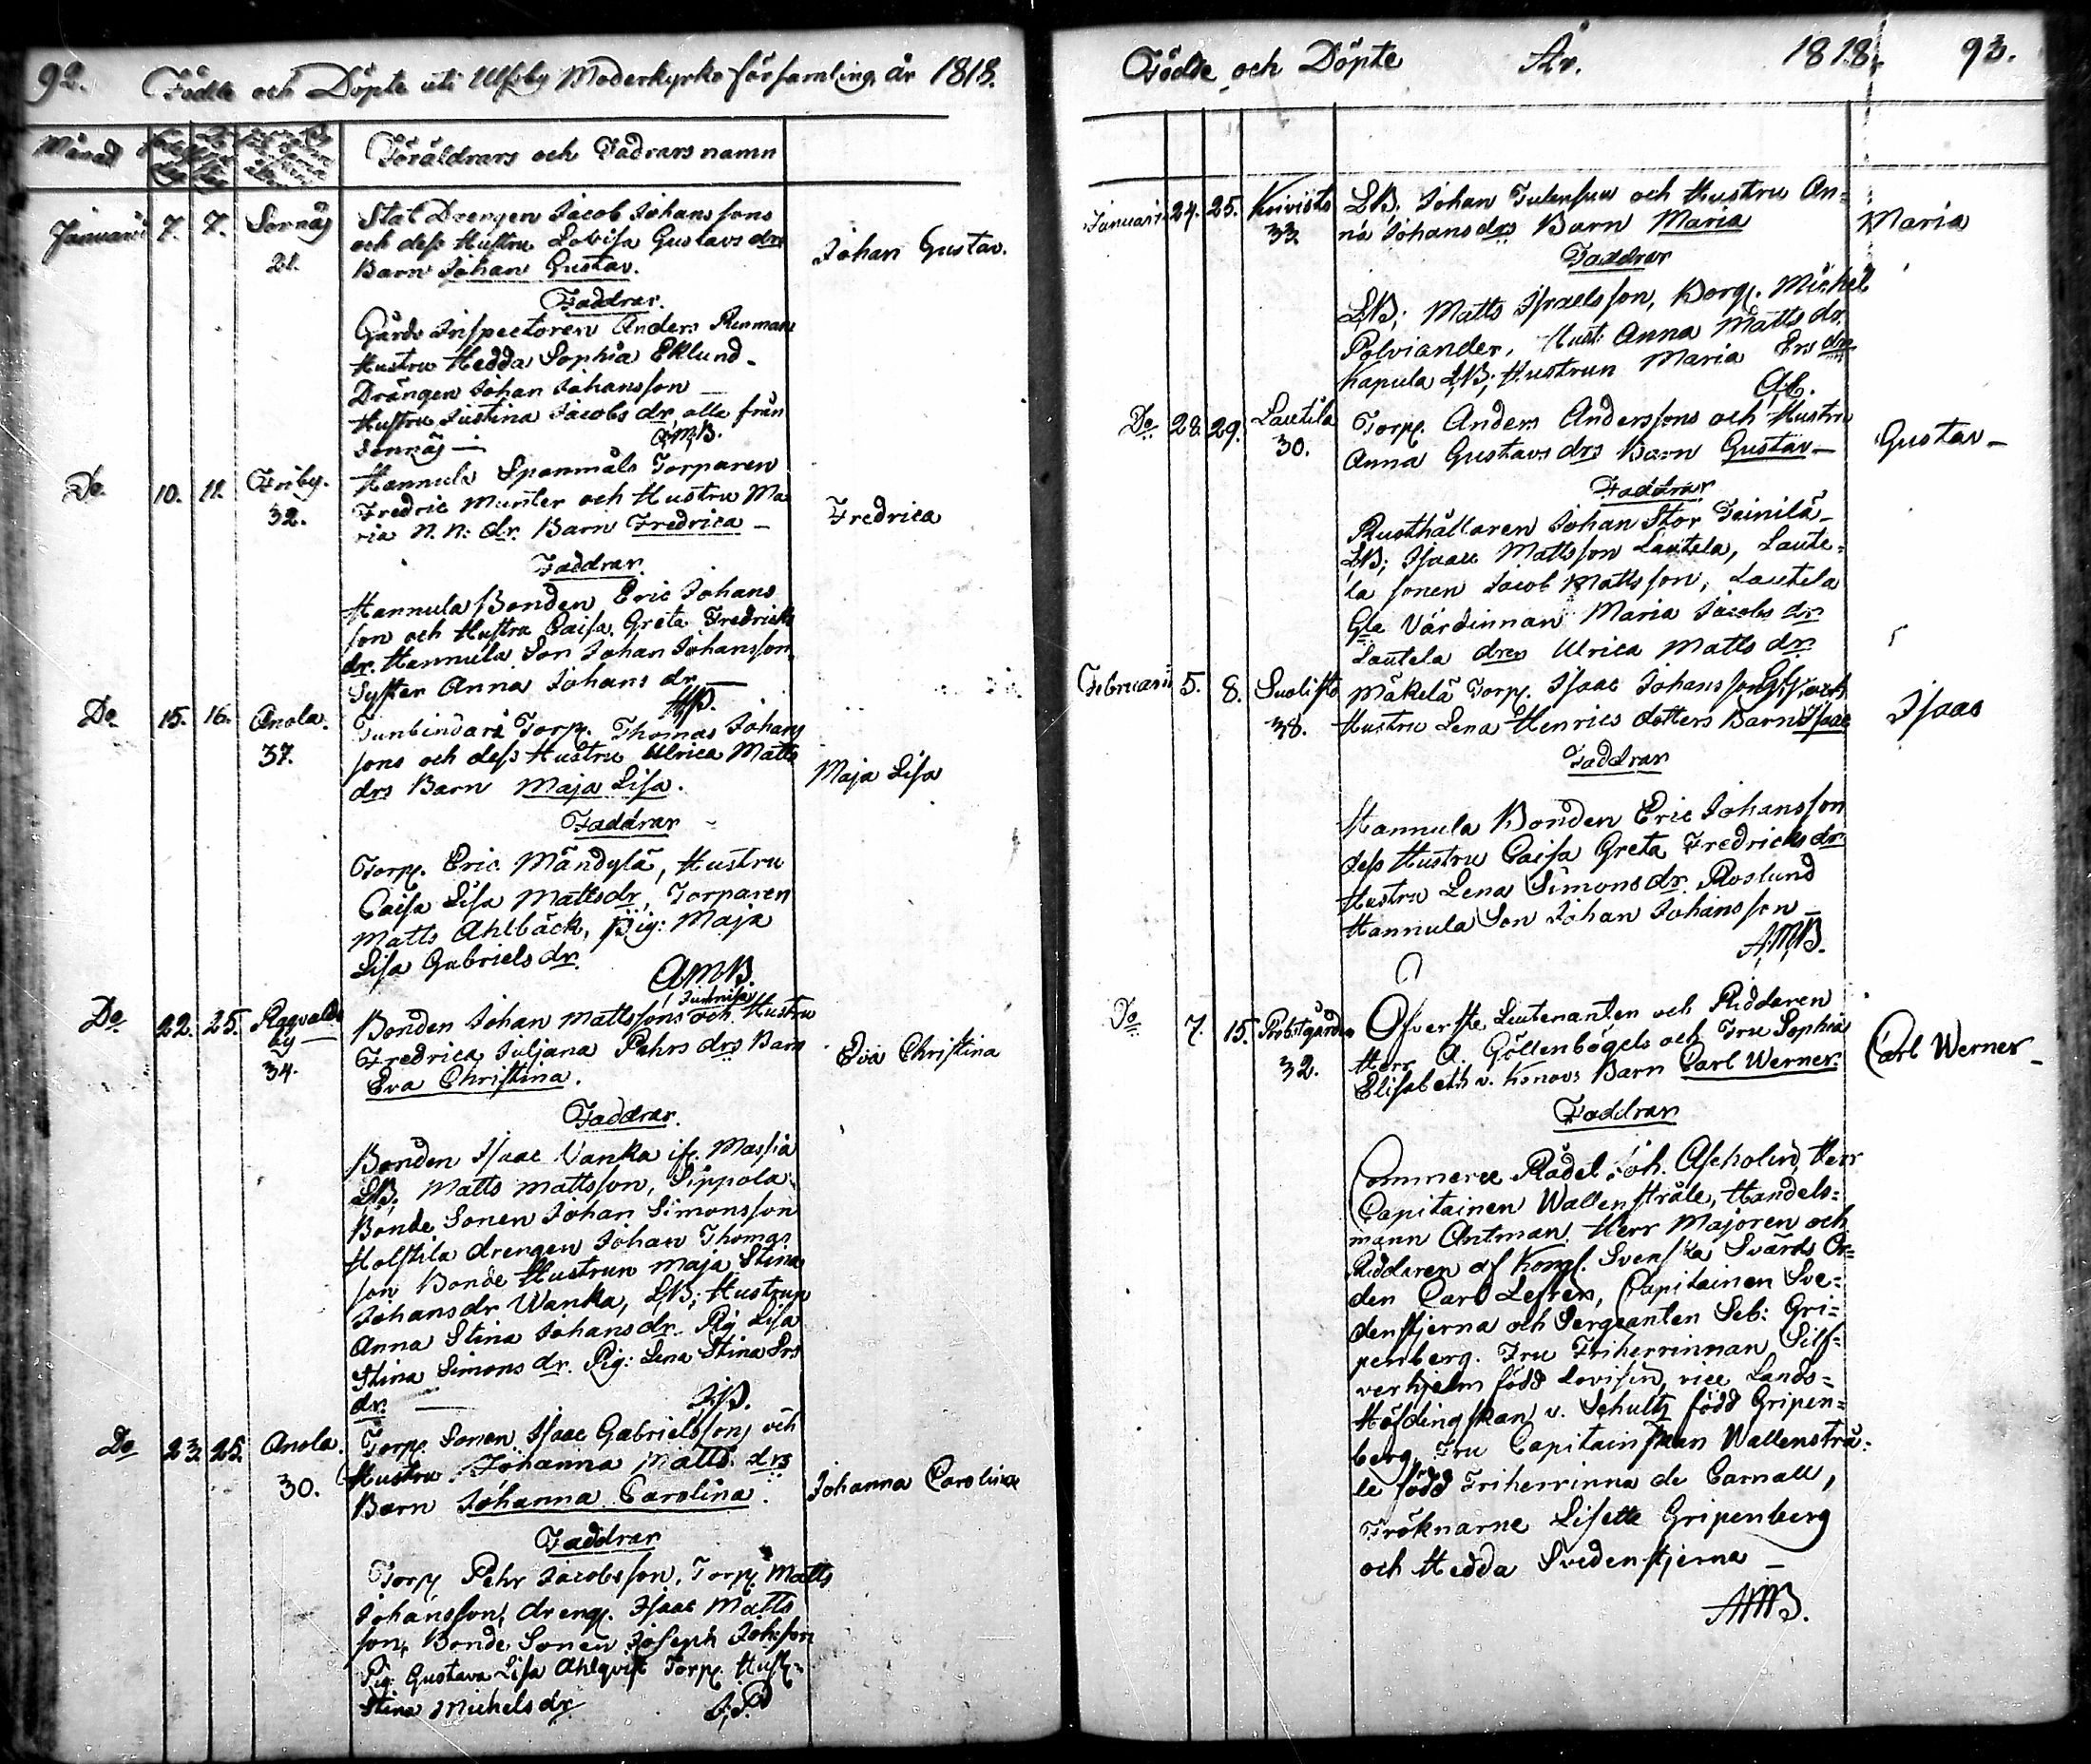 92. Födde och Döpte uti Ulfsby Moderkyrko församling, år 1818.
Månad
Föräldrars och Fadrars namn
Januarii 7. 7. Sonnäs 21.
Stal Drengen Jacob Johanssons
och dess Hustru Lovisa Gustavs drs
Barn Johan Gustav.
Johan Gustav.
Faddrar.
Gårds Inspectoren Anders Renman
Hustru Hedda Sophia Eklund -
Drängen Johan Johansson -
Hustru Justina Jacobs dr alla från
Sonnäs - A.M.B.
Do 10. 11. Friby. 32.
Hannula Spanmåls Torparen
Fredric Munter och Hustru Ma
ria N.N: dr. Barn Fredrica -
Fredrica
Faddrar.
Hannula Bonden Eric Johans
son och Hustru Caisa Greta Fredrichs
dr. Hannula Son Johan Johansson,
Syster Anna Johans dr -
Do 15. 16. Anola. 37.
Tunbindars Torp. Thomas Johans
sons och dess Hustru Ulrica Matts
drs Barn Maja Lisa.
Maja Lisa
Faddrar
Torp. Eric Mändylä, Hustru
Caisa Lisa Mattsdr, Torparen
Matts Ahlbäck, Pig: Maja
Lisa Gabriels dr. A.M.B.
Do 22. 25. Ragvalds by 34.
Bonden Johan Mattssons och Hustru
Fredrica Juljana Pehrs drs Barn
Eva Christina.
Eva Christina
Faddrar.
Bonden Isaac Vanka if. Massia
LB; Matts Mattsson, Sippola
Bonde Sonen Johan Simonsson
Holstila drengen Johan Thomas
son Bonde Hustrun Maja Stina
Johansdr Wanka, LB; Hustrun
Anna Stina Johansdr. Pig Lisa
Stina Simons dr. Pig: Lena Stina Ers
dr. -
Do 23. 25. Anola. 30.
Torp. Sonen Isaac Gabrielsson, och
Hustru Johanna Matts drs
Barn Johanna Carolina.
Johanna Carolina
Faddrar
Torp Pehr Jacobsson, Torp. Matts
Johansson, dreng. Isaac Matts
son, Bonde Sonen Joseph Johsson
Pig. Gustava Lisa Ahlqvist Torp. Hust.
Stina Michels dr
Födde och Döpte År. 1818. 93.
Januarii 24. 25. Knivisto 33.
LB. Johan Tulensuu och Hustru An=
na Johans drs Barn Maria
Maria
Faddrar
LB; Matts Israelsson, Borg. Michel
Polviander, Hust: Anna Matts dr.
Kapula LB; Hustrun Maria Ers dr
Do 28. 29. Lautila 30.
Torp. Anders Anderssons och Hustru
Anna Gustavs drs Barn Gustav -
Gustav -
Faddrar
Rusthållaren Johan Stor Teinilä -
LB; Isaac Mattsson Lautela, Laute=
la sonen Jacob Mattsson, Lautela
Gla Värdinnan Maria Jacobs dr
Lautela dren Ulrica Matts dr
Februarii 5. 8. Suolisto 38.
Mäkelä Torp. Isaac Johanssons och
Hustru Lena Henrics dotters Barn Isaac
Isaac
Faddrar
Hannula Bonden Eric Johansson
dess Hustru Caisa Greta Fredrichs dr
Hustru Lena Simons dr. Roslund
Hannula Son Johan Johansson -
A.M.B.
Do 7. 15. Prostgården 32.
Öfverste Leutenanten och Riddaren
Herr A. Göllenbögels och Fru Sophia
Elisabeth v. Konovs Barn Carl Werner.
Carl Werner -
Faddrar
Commerce Rådet Joh. Ascholin, Herr
Capitainen Wallenstråle, Handels=
mann Antman, Herr Majoren och
Riddaren af Kongl. Svenska Svärds Or=
den Carl Lefren, Capitainen Sve=
denstjerna och Sergeanten Seb: Gri=
penberg. Fru Friherrinnan Silf=
verhjelm född Lovisin, vice Lands=
Höfdingskan v. Schultz född Gripen=
berg, Fru Capitainskan Wallenströ=
le född Friherrinna de Carnall,
Fröknarne Lisette Gripenberg
och Hedda Svedenstjerna -
AMB.